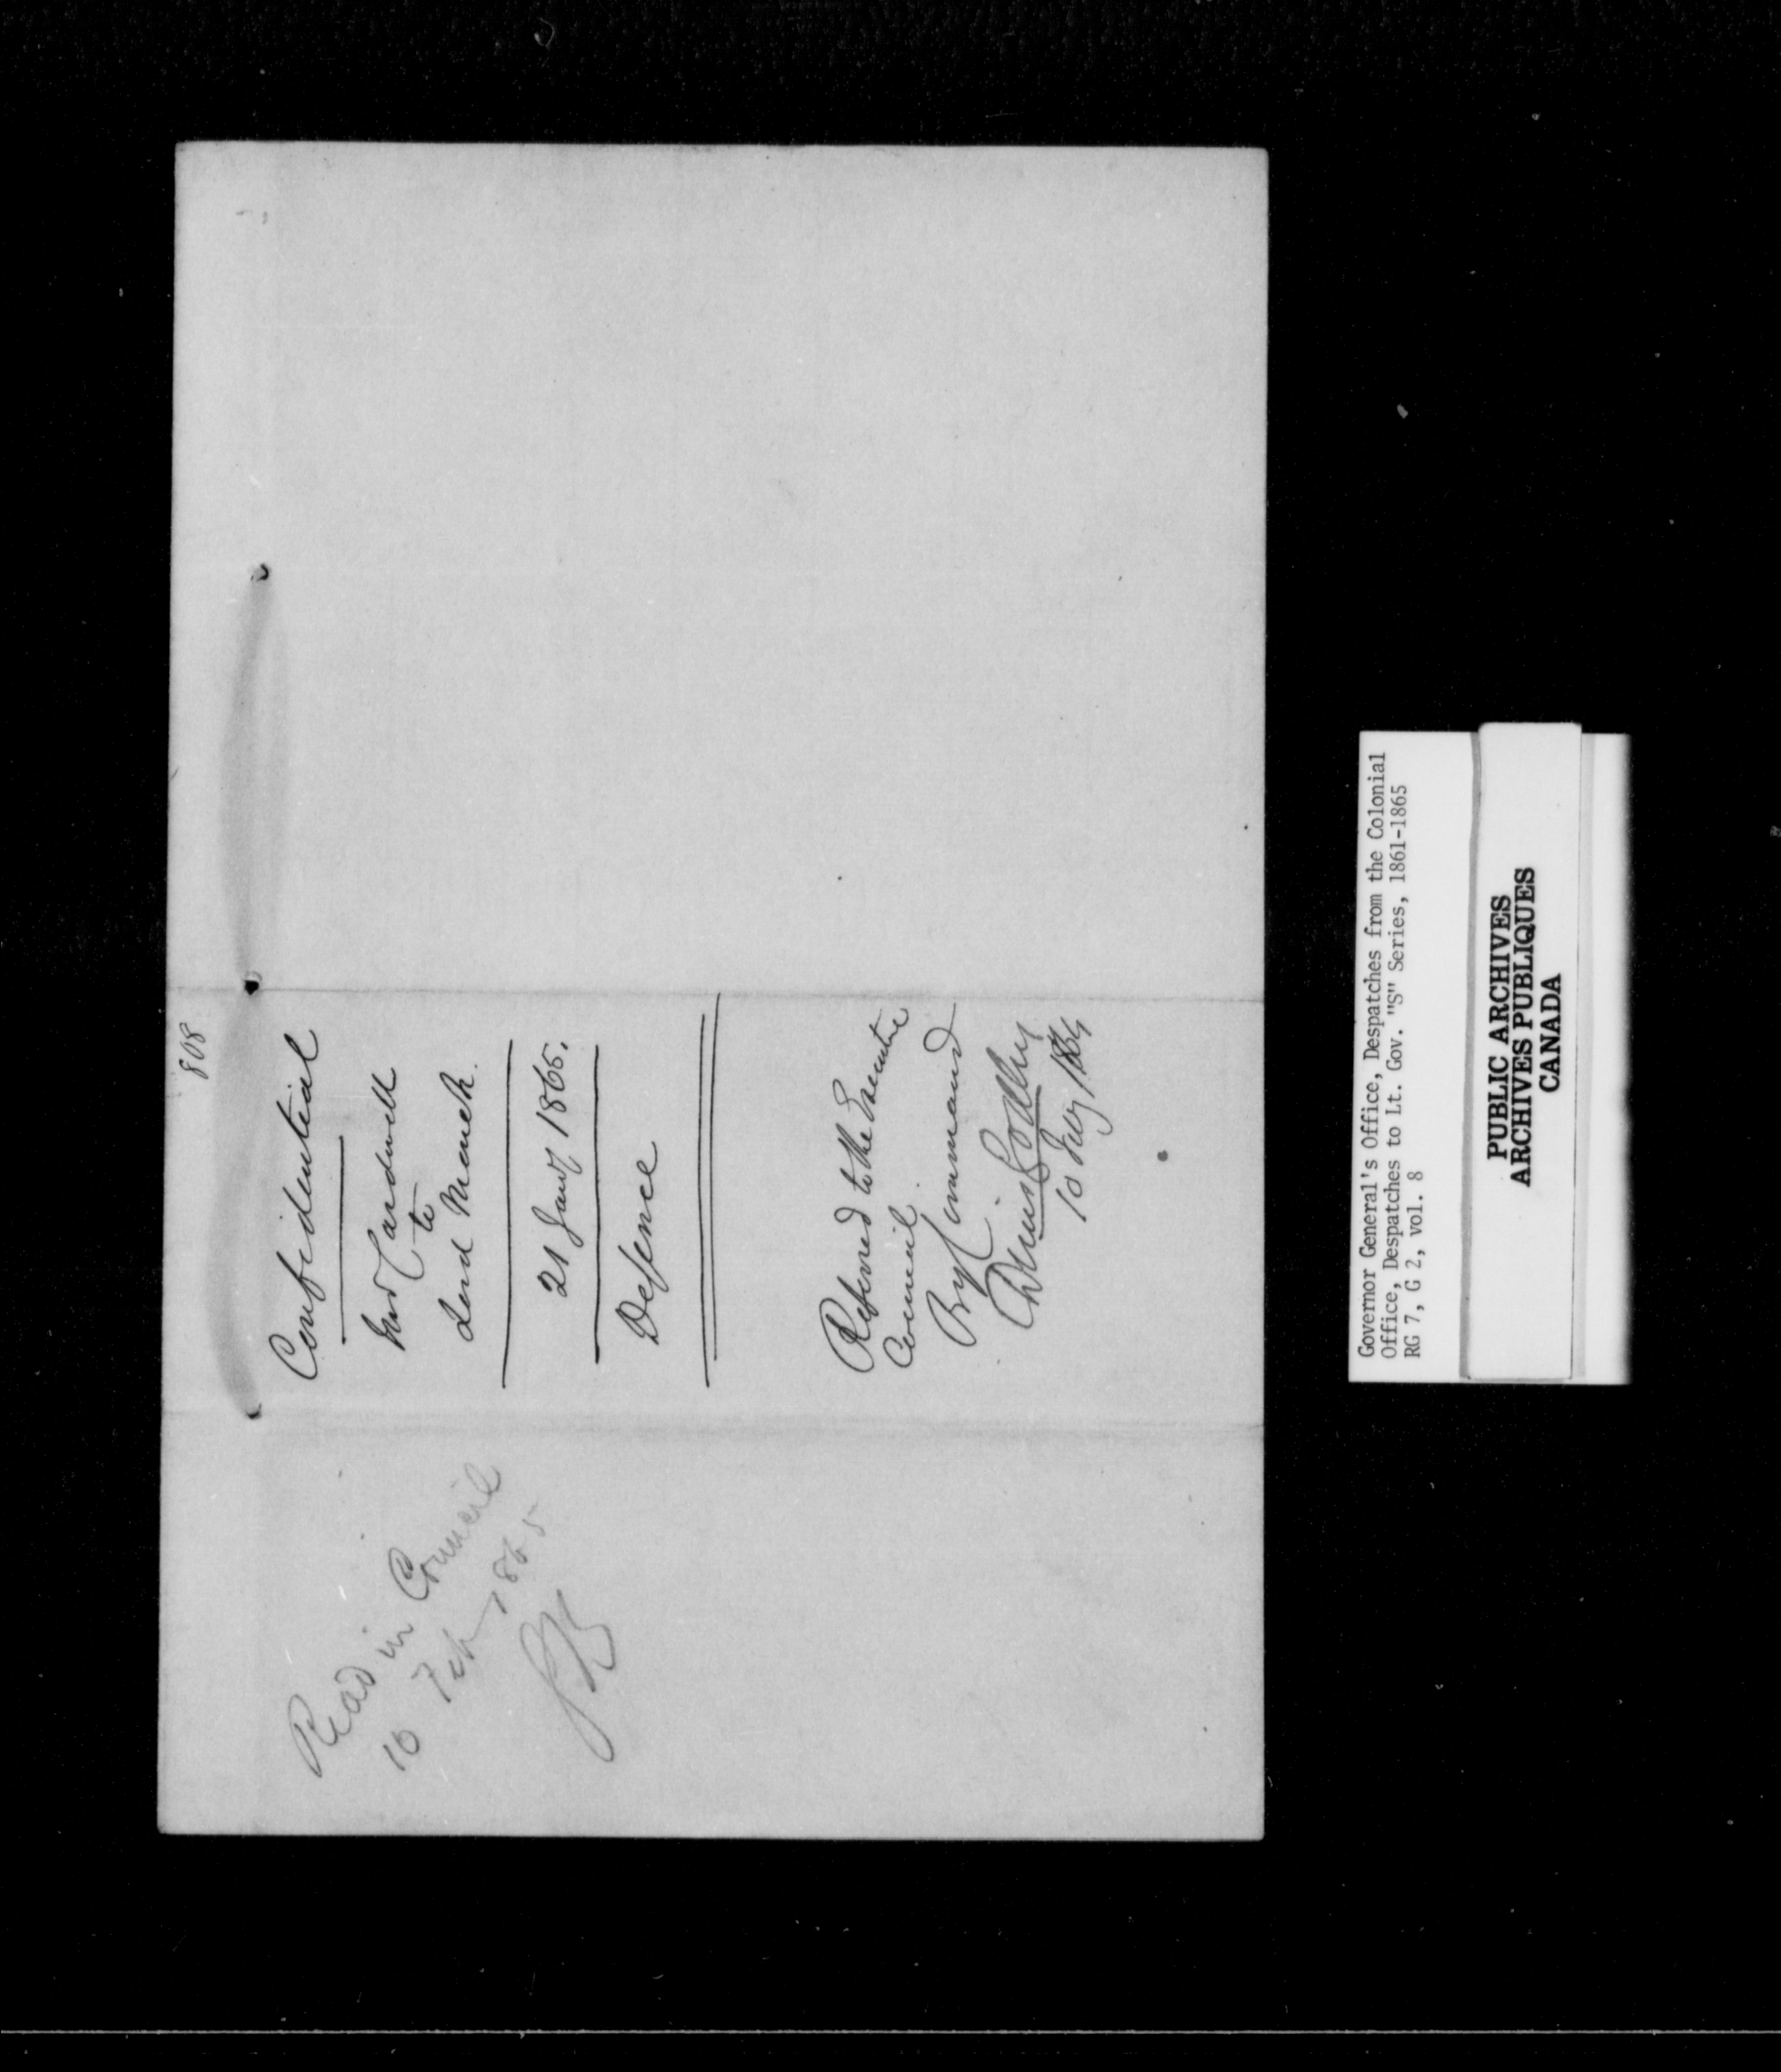 808
Confidential
Mr Cardwell
to
Lord Monck.
21 Jany 1865.
Defence
Referred to the Executive
Council
By Command
Denis Godley
10 Feby 1865
Read in Council
10 Feb 1865
Governor General's Office, Despatches from the Colonial
Office, Despatches to Lt. Gov. "S" Series, 1861-1865
RG 7, G 2, vol. 8
PUBLIC ARCHIVES
ARCHIVES PUBLIQUES
CANADA